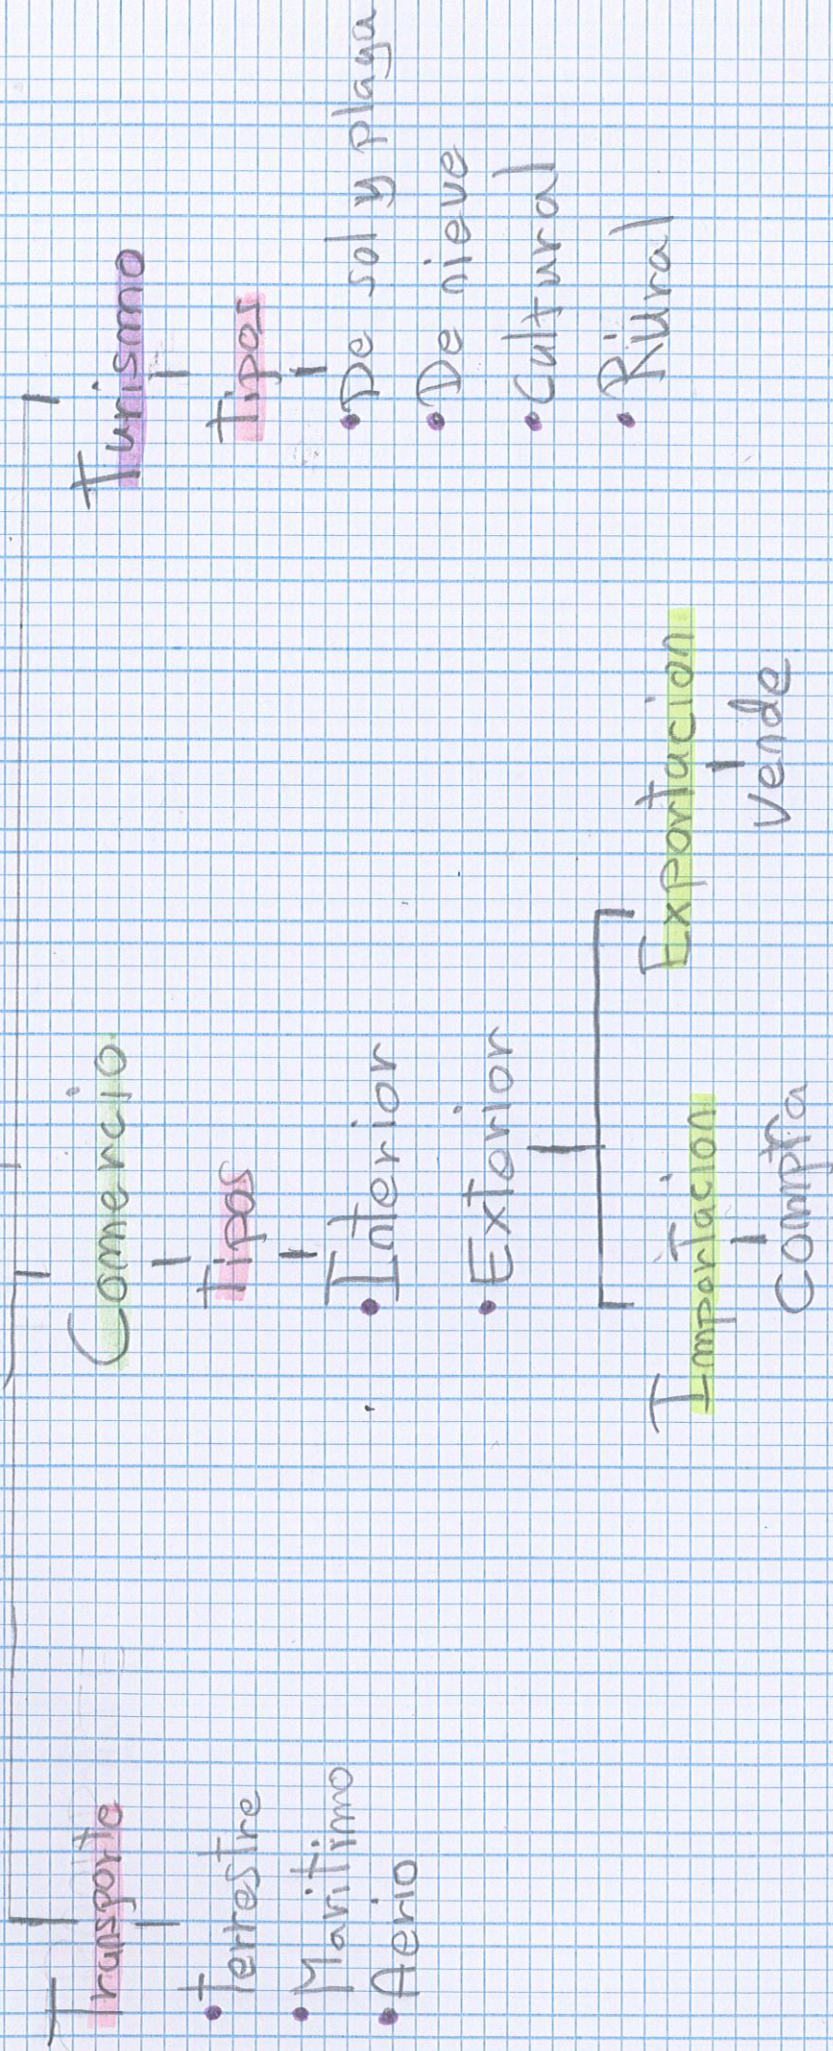 Transporte
• Terrestre
• Maritimo
• Aerio
Comercio
Tipos
• Interior
• Exterior
Importacion
Compra
Exportacion
Vende
Turismo
Tipos
• De sol y playa
• De nieve
• Cultural
• Rural